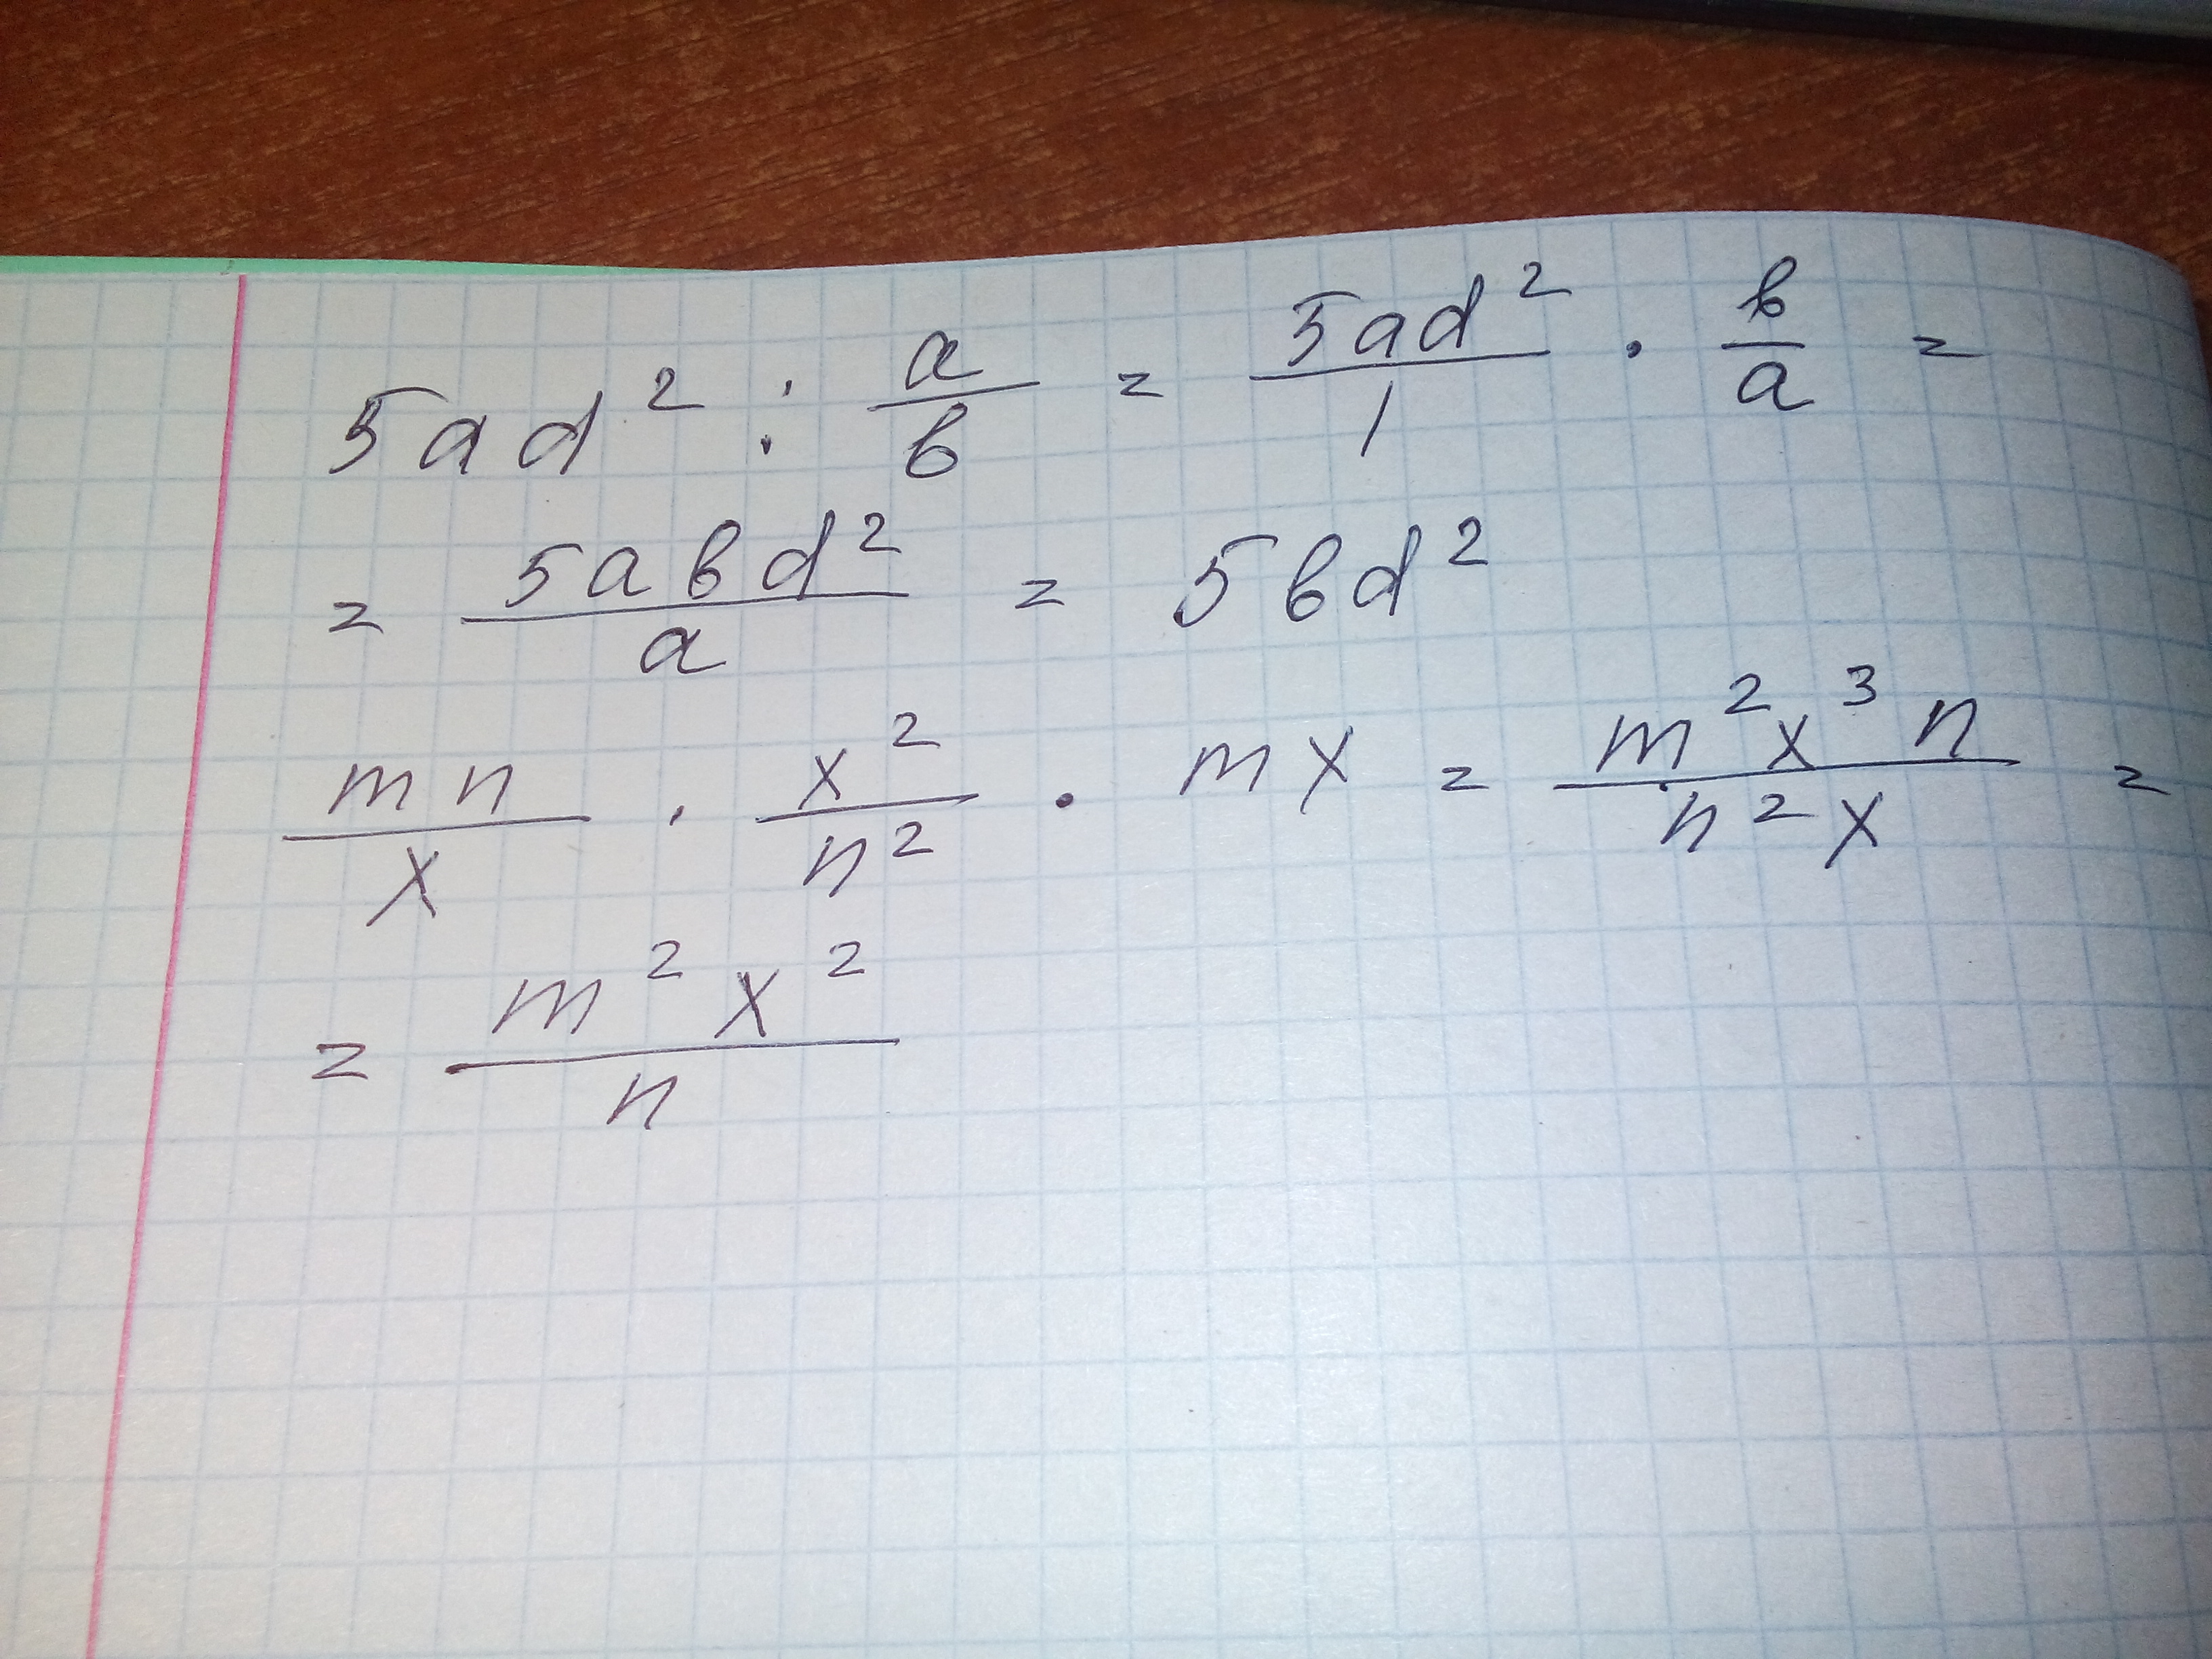 5ad² : a/b = 5ad²/1 · b/a =
= 5abd²/a = 5bd²
mn/x · x²/n² · mx = m²x³n/n²x =
= m²x²/n